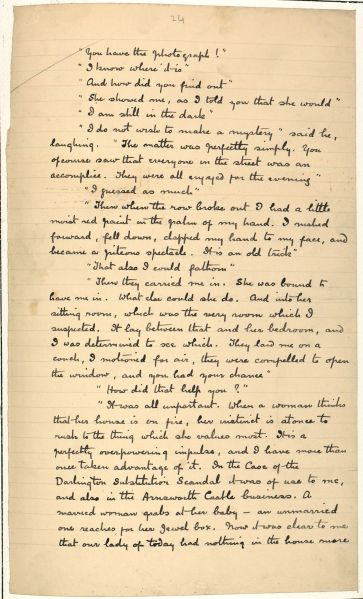 24
"You have the photograph!"
"I know where it is"
"And how did you find out"
"She showed me, as I told you that she would"
"I am still in the dark"
"I do not wish to make a mystery" said he,
laughing. "The matter was perfectly simply. You
of course saw that everyone in the street was an
accomplice. They were all engaged for the evening"
"I guessed as much"
"Then when the row broke out I had a little
moist red paint in the palm of my hand. I rushed
forward, fell down, clapped my hand to my face, and
became a piteous spectacle. It is an old trick"
"That also I could fathom"
"Then they carried me in. She was bound to
have me in. What else could she do. And into her
sitting room, which was the very room which I
suspected. It lay between that and her bedroom, and
I was determined to see which. They laid me on a
couch, I motioned for air, they were compelled to open
the window, and you had your chance"
"How did that help you?"
"It was all important. When a woman thinks
that her house is on fire, her instinct is at once to
rush to the thing which she values most. It is a
perfectly overpowering impulse, and I have more than
once taken advantage of it. In the Case of the
Darlington Substitution Scandal it was of use to me,
and also in the Arnsworth Castle business. A
married woman grabs at her baby - an unmarried
one reaches for her Jewel box. Now it was clear to me
that our lady of today had nothing in the house more